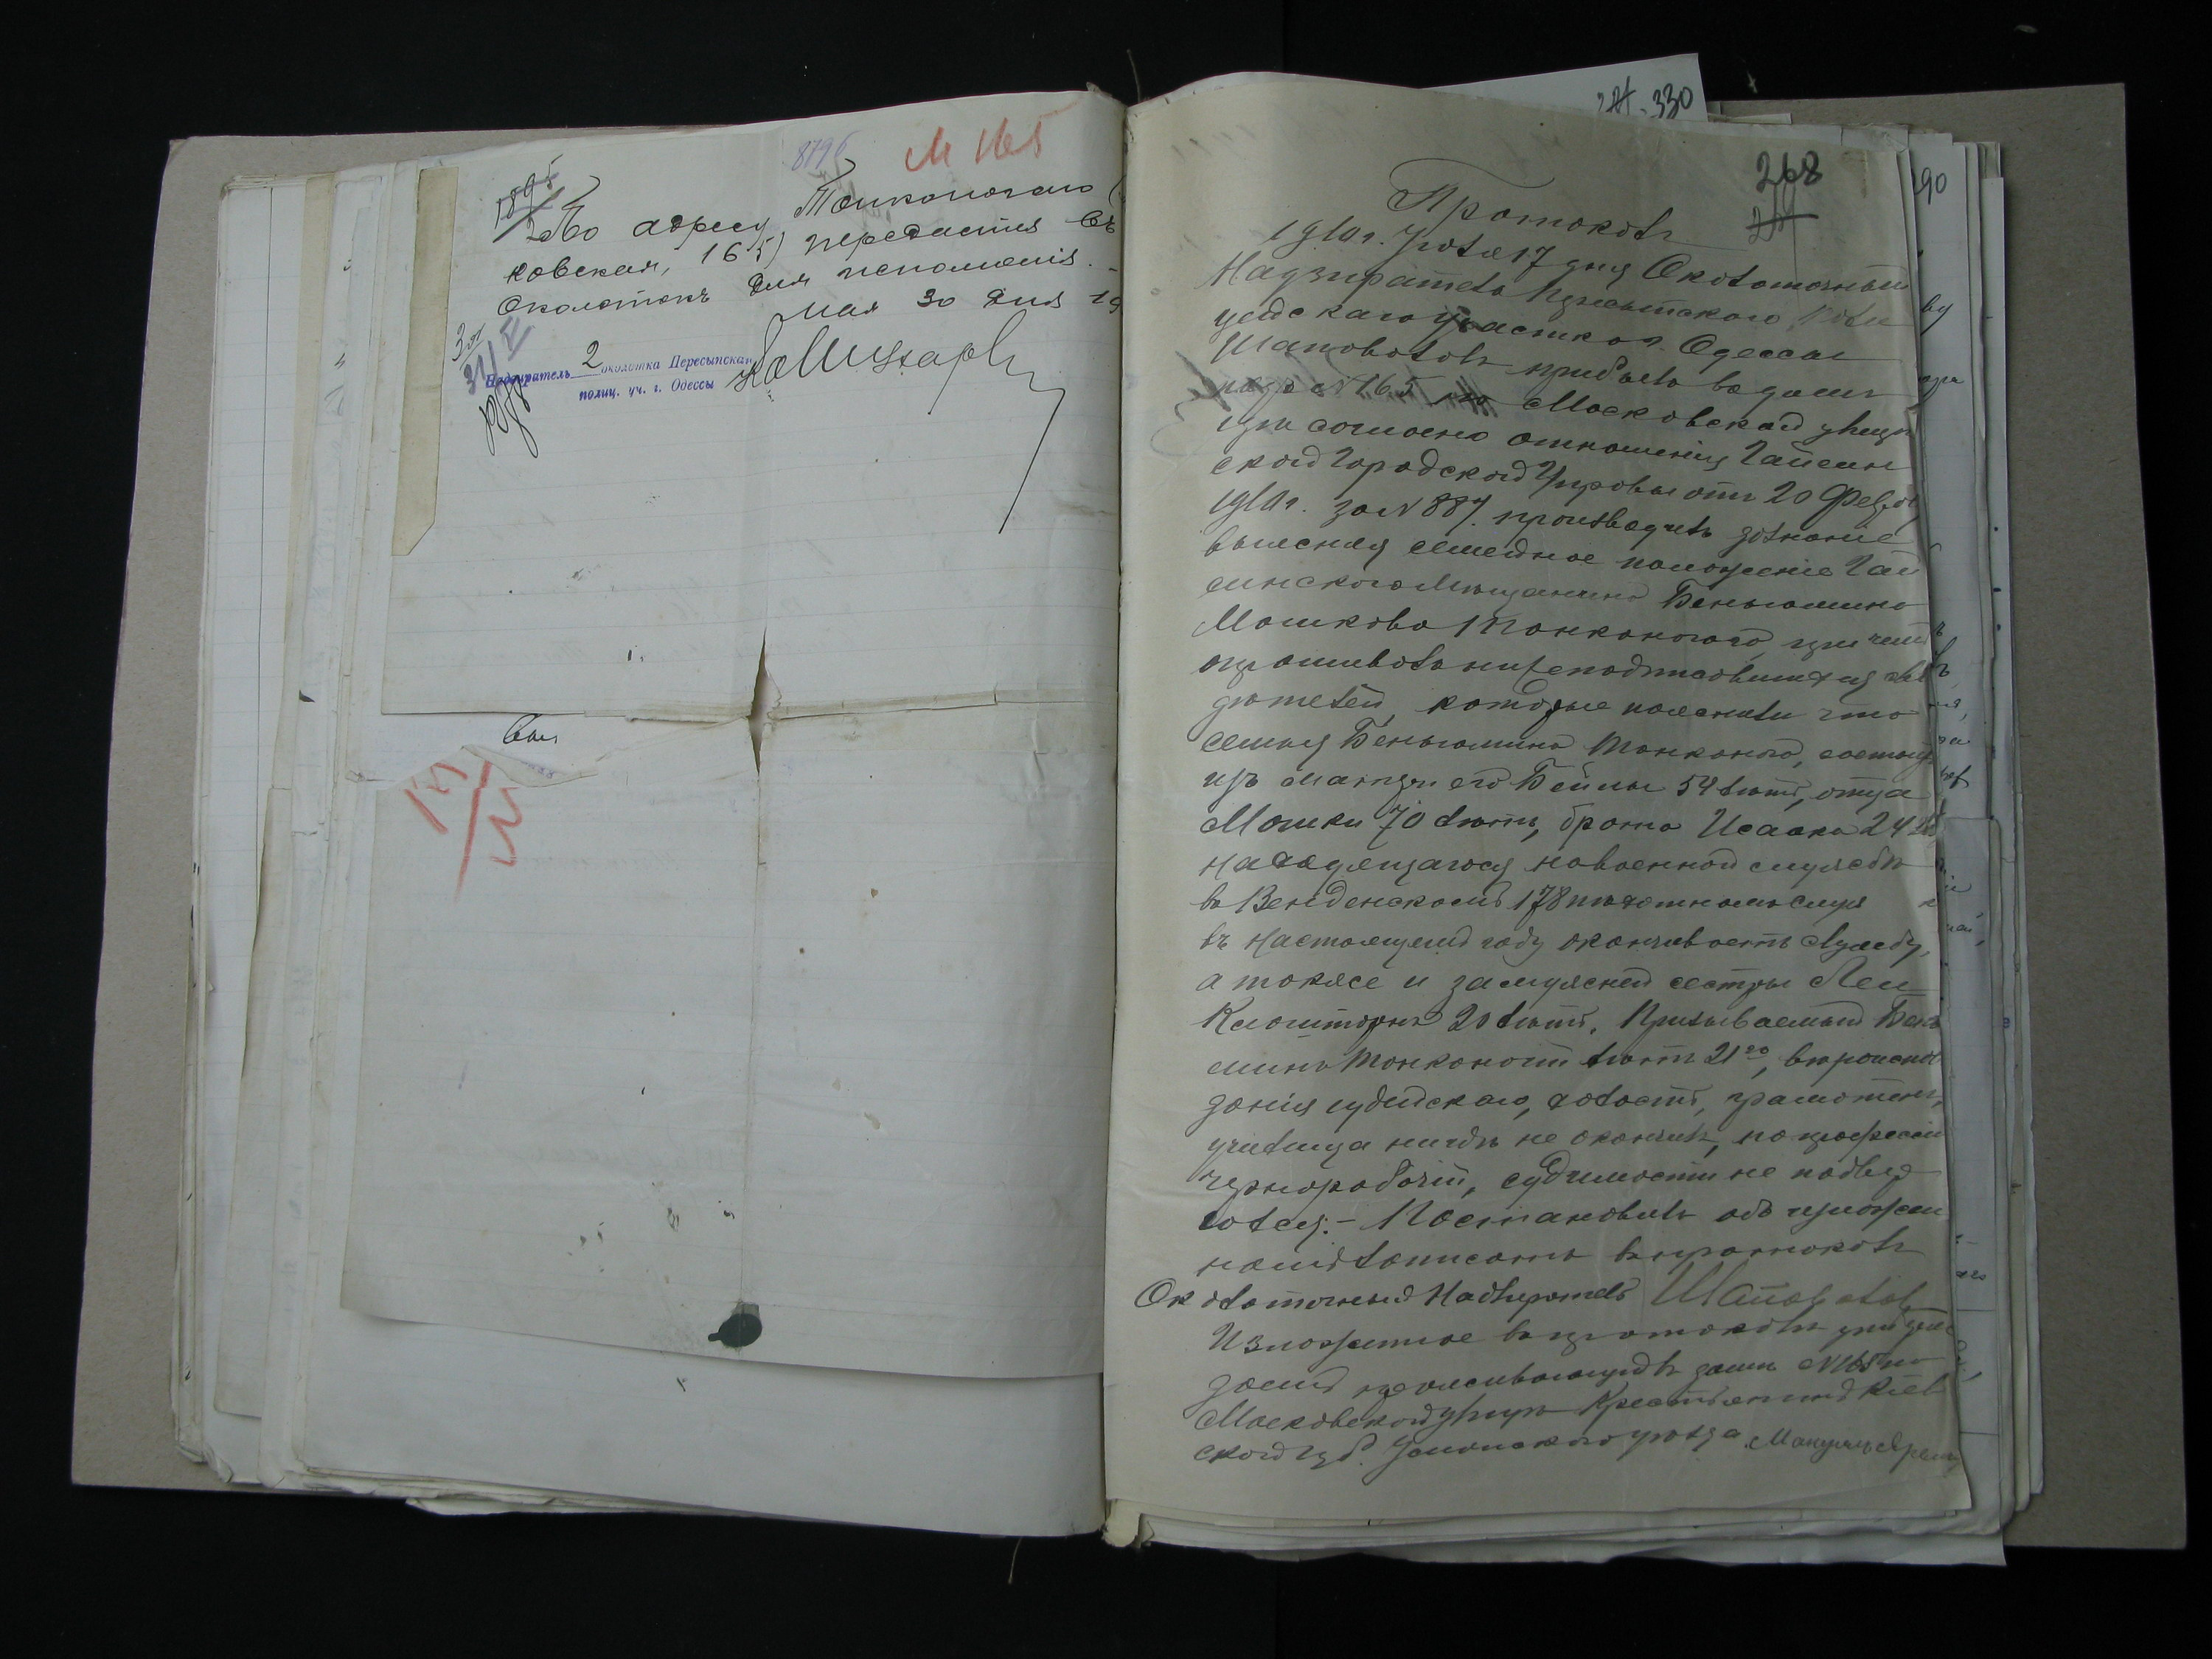 8796
М 165
По адресу Тонконогаго
ковская, 165) передается въ
Околотокъ для исполненія. -
Мая 30 дня 19
Надзиратель 2 околотка Пересыпскаго
полиц. уч. г. Одессы
330
268
90
Протоколъ
191 г. Іюля 17 дня Околоточный
Надзиратель Пересыпского Поли
цейскаго участка г. Одессы
Шаповаловъ прибылъ въ домъ
№ 165 по Московской улицѣ
гдѣ согласно отношенія Гайсин
ской Городской Управы отъ 20 Февраля
191 г. за № 887. производилъ дознаніе
выясняя семейное положеніе Гай
синскаго Мѣщанина Беньюмина
Мошкова Тонконогаго, при чемъ
опрашивалъ нижеподписавшихся сви
дѣтелей, которые пояснили что
семья Беньюмина Тонконого, состоитъ
изъ матери его Бейлы 54 лѣтъ, отца
Мошки 70 лѣтъ, брата Исаака 24 лѣтъ
находящагося на военной службѣ
въ Венденскомъ 178 пѣхотномъ
въ настоящемъ году оканчиваетъ службу,
а также и замужней сестры Леи
20 лѣтъ, Призываемый Бень
минъ Тонконогій лѣтъ 21го, вѣроиспо
данія іудейскаго, холостъ, грамотенъ,
училища нигдѣ не окончилъ, по профессіи
чернорабочій, судимости не подвер
гался. - Постановилъ объ изложен
номъ записать въ протоколъ
Околоточный Надзиратель Шаповаловъ
Изложенное въ протоколѣ
проживающій въ домѣ № 165 по
Московской улицѣ Крестьянинъ Кіев
ской губ. Уманскаго уѣзда